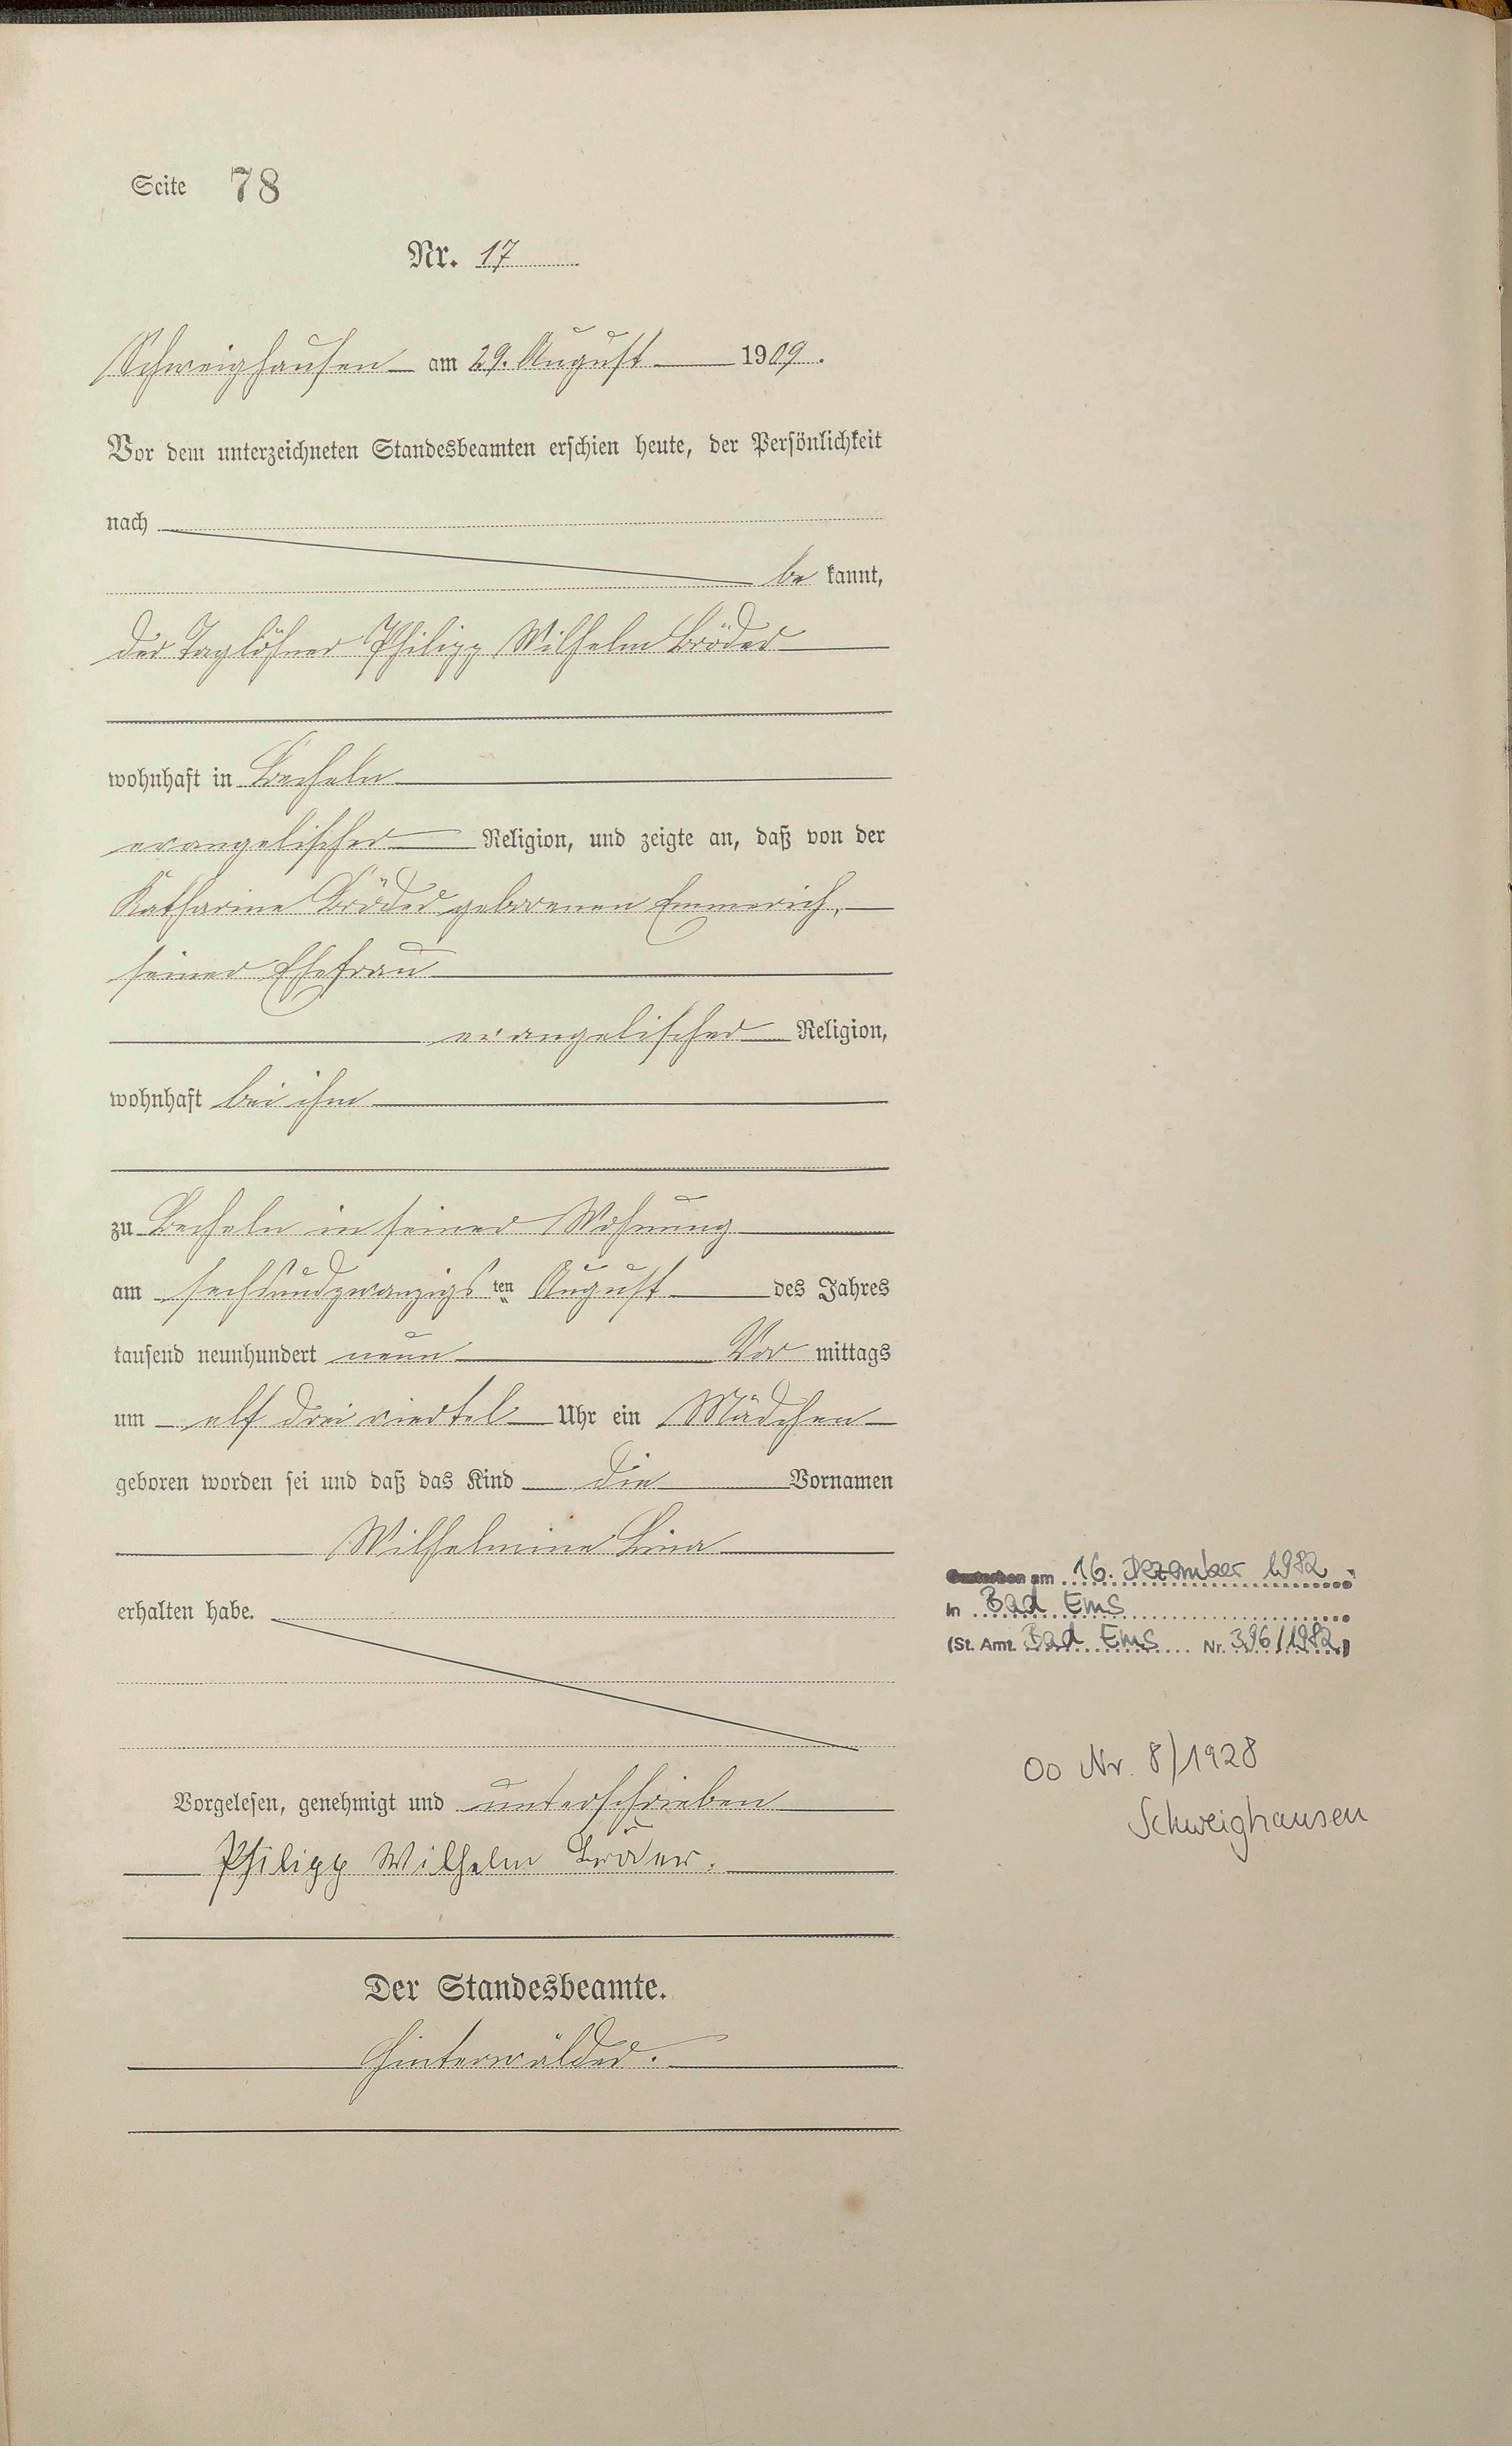 Seite 78
Nr. 17
Schweighausen am 29. August 1909.
Vor dem unterzeichneten Standesbeamten erschien heute, der Persönlichkeit
nach
be kannt,
der Taglöhner Philipp Wilhelm Bröder
wohnhaft in Becheln
evangelischer Religion, und zeigte an, daß von der
Katharine Bröder geborenen Emmerich,
seiner Ehefrau
evangelischer Religion,
wohnhaft bei ihm
zu Becheln in seiner Wohnung
am sechsundzwanzigs ten August des Jahres
tausend neunhundert neun Vor mittags
um elf drei viertel Uhr ein Mädchen
geboren worden sei und daß das Kind die Vornamen
Wilhelmine Lina
erhalten habe.
Vorgelesen, genehmigt und unterschrieben
Philipp Wilhelm Bröder.
Der Standesbeamte.
Hinterwälder.
Gestorben am 16. Dezember 1982
in Bad Ems
(St. Amt. Bad Ems Nr. 396/1982)
Oo Nr. 8/1928
Schweighausen